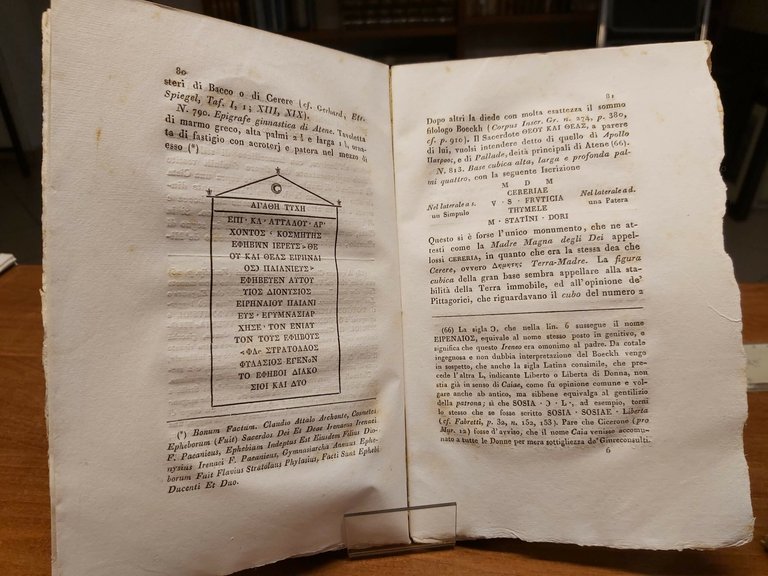 80
steri di Bacco o di Cerere (cf. Gerhard, Etr.
Spiegel, Taf. I, 1; XIII, XIX).
N. 790. Epigrafe ginnastica di Atene. Tavoletta
di marmo greco, alta palmi 2 ½ e larga 1 ½, orna-
ta di fastigio con acroterj e patera nel mezzo di
esso (*)
ΑΓΑΘΗ ΤΥΧΗ
ΕΠΙ · ΚΛ · ΑΤΤΑΛΟΥ · ΑΡ'
ΧΟΝΤΟΣ · ΚΟΣΜΗΤΗΣ
ΕΦΗΒΩΝ ΙΕΡΕΥΣ > ΘΕ
ΟΥ ΚΑΙ ΘΕΑΣ ΕΙΡΗΝΑΙ
ΟΣƆ ΠΑΙΑΝΙΕΥΣ >
ΕΦΗΒΕΥΕΝ ΑΥΤΟΥ
ΥΙΟΣ ΔΙΟΝΥΣΙΟΣ
ΕΙΡΗΝΑΙΟΥ ΠΑΙΑΝΙ
ΕΥΣ · ΕΓΥΜΝΑΣΙΑΡ
ΧΗΣΕ · ΤΟΝ ΕΝΙΑΥ
ΤΟΝ ΤΟΥΣ ΕΦΗΒΟΥΣ
<ΦΛ< ΣΤΡΑΤΟΛΑΟΣ
ΦΥΛΑΣΙΟΣ ΕΓΕΝΟΝ
ΤΟ ΕΦΗΒΟΙ ΔΙΑΚΟ
ΣΙΟΙ ΚΑΙ ΔΥΟ
(*) Bonum Factum. Claudio Attalo Archonte, Cosmetes
Epheborum (Fuit) Sacerdos Dei Et Deae Irenaeus Irenaei
F. Paeanieus, Ephebiam Indeptus Est Eiusdem Filius Dio-
nysius Irenaei F. Paeanieus, Gymnasiarcha Annuus Ephe-
borum Fuit Flavius Stratolaus Phylasius, Facti Sant Ephebi
Ducenti Et Duo.
81
Dopo altri la diede con molta esattezza il sommo
filologo Boeckh (Corpus Inscr. Gr. n. 274, p. 380,
cf. p. 910). Il Sacerdote ΘΕΟΥ ΚΑΙ ΘΕΑΣ, a parere
di lui, vuolsi intendere detto di quello di Apollo
Πατρωος, e di Pallade, deità principali di Atene (66).
N. 813. Base cubica alta, larga e profonda pal-
mi quattro, con la seguente Iscrizione
M D M
CERERIAE
Nel laterale a s. V · S · FRVTICIA Nel laterale a d.
un Simpulo THYMELE una Patera
M · STATINI · DORI
Questo si è forse l'unico monumento, che ne at-
testi come la Madre Magna degli Dei appel-
lossi CERERIA, in quanto che era la stessa dea che
Cerere, ovvero Δημητης Terra-Madre. La figura
cubica della gran base sembra appellare alla sta-
bilità della Terra immobile, ed all'opinione de'
Pitagorici, che riguardavano il cubo del numero a
(66) La sigla Ɔ, che nella lin. 6 sussegue il nome
ΕΙΡΕΝΑΙΟΣ, equivale al nome stesso posto in genitivo, e
significa che questo Ireneo era omonimo al padre. Da cotale
ingegnosa e non dubbia interpretazione del Boeckh vengo
in sospetto, che anche la sigla Latina consimile, che pre-
cede l'altra L, indicante Liberto o Liberta di Donna, non
stia già in senso di Caiae, come fu opinione comune e vol-
gare anche ab antico, ma sibbene equivalga al gentilizio
della patrona; sì che SOSIA · Ɔ · L · , ad esempio, torni
lo stesso che se fosse scritto SOSIA · SOSIAE · Liberta
(cf. Fabretti, p. 32, n. 152, 153). Pare che Cicerone (pro
Mur. 12) fosse d'avviso, che il nome Caia venisse accomu-
nato a tutte le Donne per mera sottigliezza de' Giureconsulti.
6